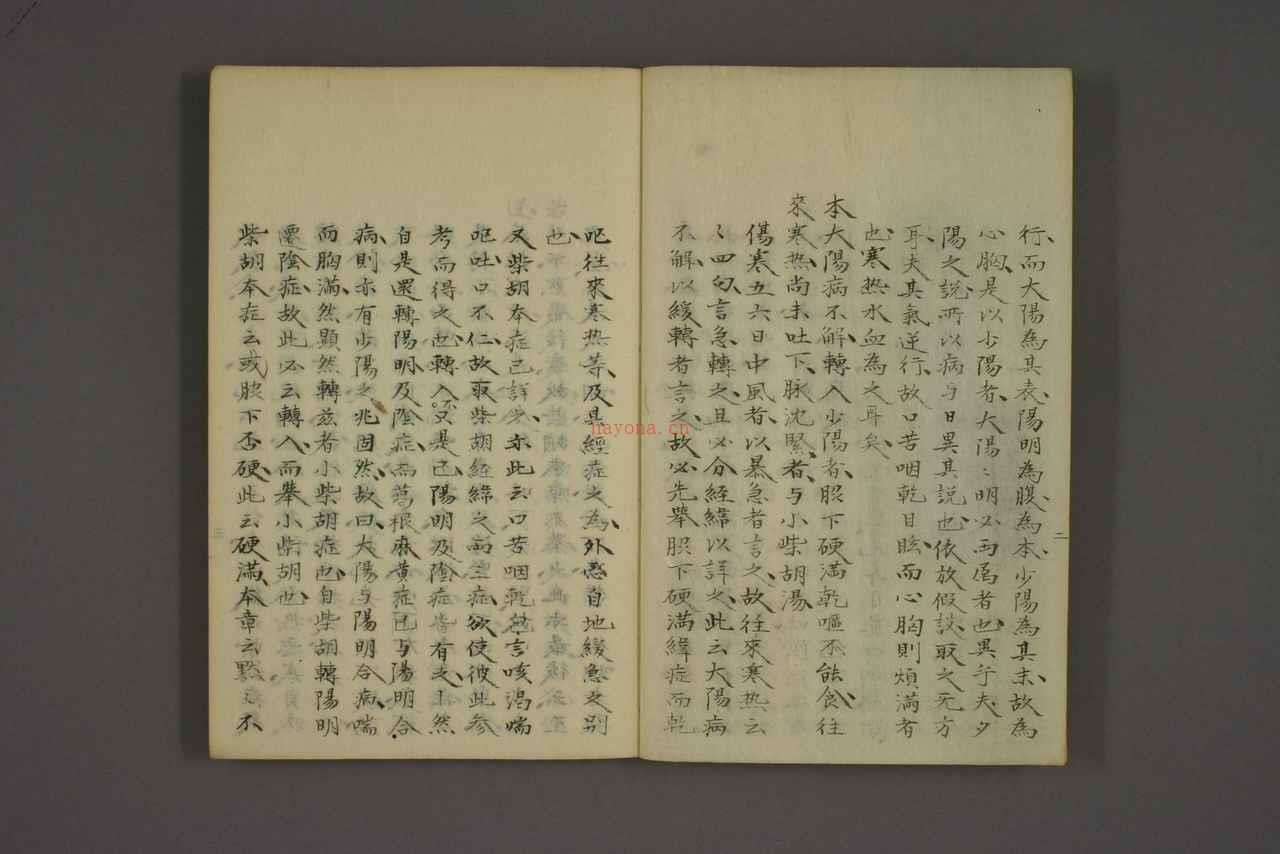 行、而大陽為其表、陽明為腹、為本、少陽為其末、故為
心胸、是以少陽者、大陽〻明必両属者也、異乎夫夕
陽之說、所以病与日異其說也、依放假設、取之无方
耳、夫其氣逆行、故口苦咽乾目眩、而心胸則煩滿者
也、寒热水血為之耳矣、
本大陽病不解、轉入少陽者、脇下硬滿乾嘔不能食、往
來寒热、尚未吐下、脉沈緊者、与小柴胡湯、
傷寒五六日中風者、以暴急者言之、故往來寒热云
〻四句、言急轉之、且必分経緯以詳之、此云大陽病
不解、以緩轉者言之、故必先舉脇下硬滿緯症而乾
呕往來寒热等、及具經症之為、外感自地緩急之別
也、
又柴胡本症已詳、亦此云口苦咽乾、言咳渴喘
呕吐、口不仁、故取柴胡経緯之症、欲使彼此参
考而得之也、轉入又是已陽明及陰症皆有之、然
自是還轉陽明及陰症而葛根麻黄症已与陽明合
病、則亦有少陽之兆固然、故曰、大陽与陽明合病、喘
而胸滿、然顯然轉茲者小柴胡症也、自柴胡轉陽明
遷陰症、故此必云轉入、而舉小柴胡也、
柴胡本症云或脇下否硬、此云硬滿、本章云黙〻不
二
三
nayona.cn